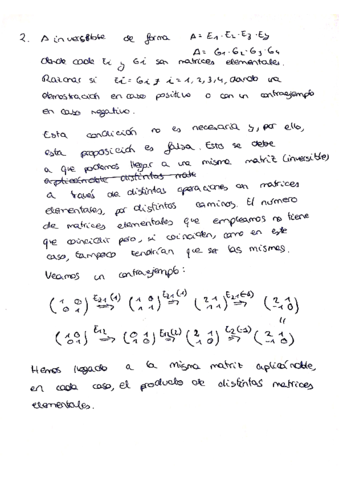 2. A invertible de forma A = E1 · E2 · E3 · E4
A = G1 · G2 · G3 · G4
donde cada Ei y Gi son matrices elementales.
Razonar si Ei = Gi ∀ i = 1, 2, 3, 4, dando una
demostración en caso positivo o con un contraejemplo
en caso negativo.
Esta condición no es necesaria y, por ello,
esta proposición es falsa. Esto se debe
a que podemos llegar a una misma matriz (inversible)
a través de distintas operaciones con matrices
elementales, por distintos caminos. El número
de matrices elementales que empleamos no tiene
que coincidir pero, si coinciden, como en este
caso, tampoco tendrían que ser las mismas.
Veamos un contraejemplo:
(1 0 / 0 1) E21(1) ⇒ (1 0 / 1 1) ⇒ (2 1 / 1 1) E21(-1) ⇒ (2 1 / -1 0)
"
(1 0 / 0 1) E12 ⇒ (0 1 / 1 0) ⇒ (2 1 / 1 0) E2(-1) ⇒ (2 1 / -1 0)
Hemos llegado a la misma matriz aplicándole,
en cada caso, el producto de distintas matrices
elementales.